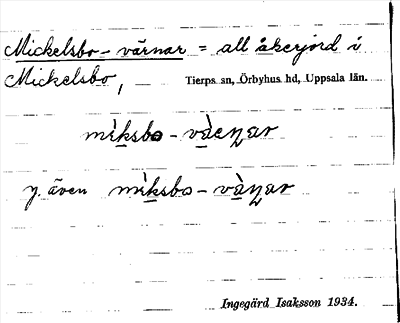 Mickelsbo-värnar = all åkerjord i
Mickelsbo, Tierps sn, Örbyhus hd, Uppsala län.
mìksbo - vàeɳar
y. även mìksbo - vàɳar
Ingegärd Isaksson 1934.